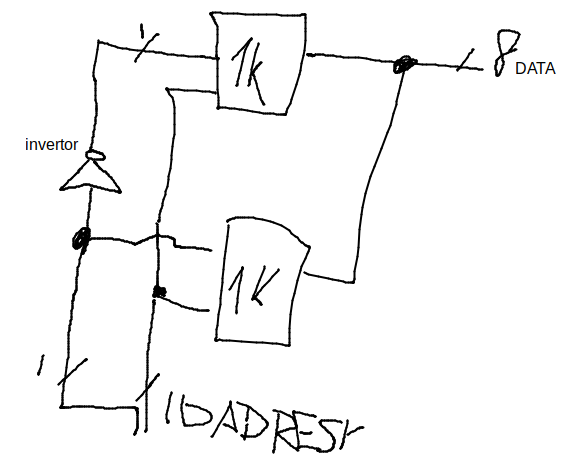 1
1k
8
DATA
invertor
1K
1
10 ADRESY